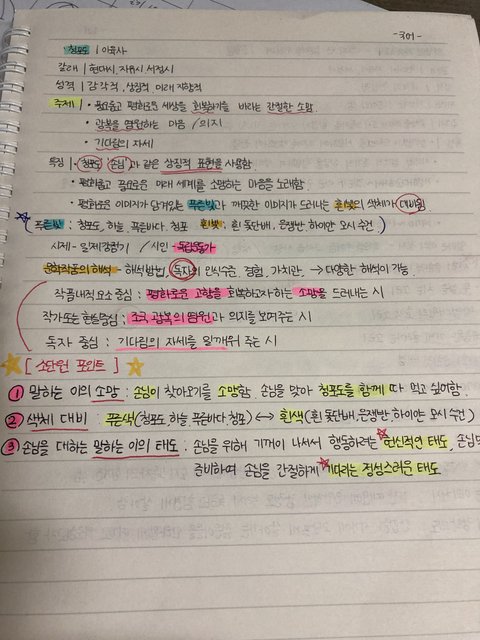 -국어-
청포도 | 이육사
갈래 | 현대시, 자유시 서정시
성격 | 감각적, 상징적 미래 지향적
주제 | • 풍요롭고 평화로운 세상을 회복하기를 바라는 간절한 소망.
• 광복을 염원하는 마음 / 의지
• 기다림의 자세
특징 | • 청포도, 손님과 같은 상징적 표현을 사용함
• 평화롭고 풍요로운 미래 세계를 소망하는 마음을 노래함
• 평화로운 이미지가 담겨있는 푸른빛과 깨끗한 이미지가 드러나는 흰빛의 색채가 대비됨
(푸른빛 : 청포도, 하늘, 푸른바다, 청포 흰빛 : 흰 돛단배, 은쟁반, 하이얀 모시 수건)
시제 - 일제강점기 / 시인 - 독립운동가
문학작품의 해석 - 해석방법, 독자의 인식수준, 경험, 가치관, → 다양한 해석이 가능.
작품내적요소 중심 : 평화로운 고향을 회복하고자하는 소망을 드러내는 시
작가또는 현실중심 : 조국 광복의 염원과 의지를 보여주는 시
독자 중심 : 기다림의 자세를 일깨워 주는 시
[소단원 포인트]
① 말하는 이의 소망 : 손님이 찾아오기를 소망함. 손님을 맞아 청포도를 함께 따 먹고 싶어함.
② 색채 대비 : 푸른색(청포도, 하늘 푸른바다, 청포) ↔ 흰색 (흰 돛단배, 은쟁반, 하이얀 모시 수건)
③ 손님을 대하는 말하는 이의 태도 : 손님을 위해 기꺼이 나서서 행동하려는 헌신적인 태도, 손님
준비하며 손님을 간절하게 기다리는 정성스러운 태도